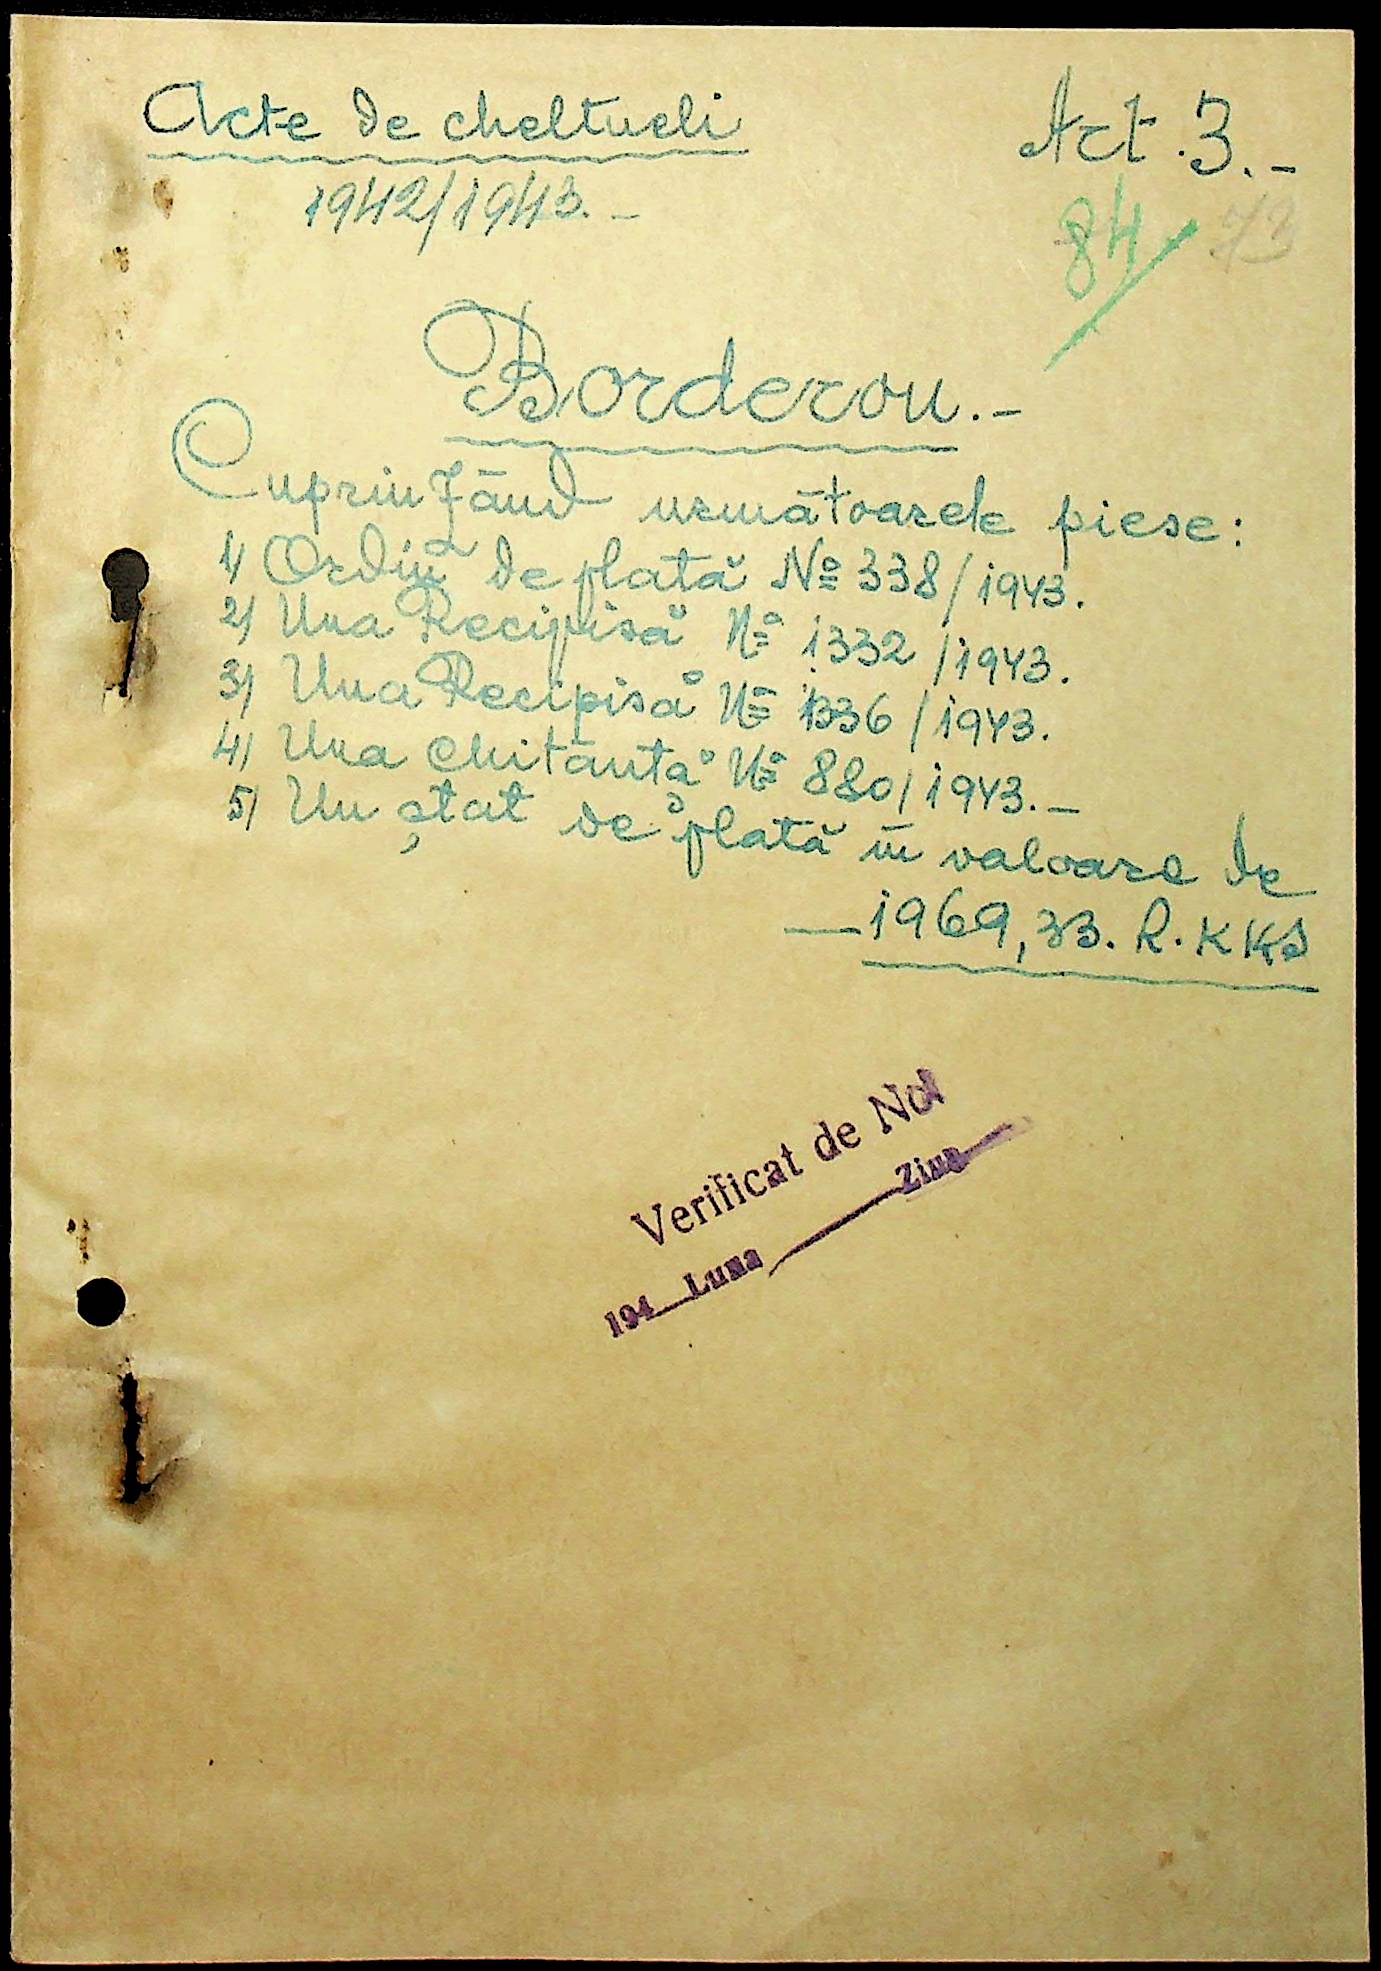 Acte de cheltueli
Art. 3.-
1942/1943.-
84
73
Borderou.-
Cuprinzând următoarele piese:
1) Ordin de plată № 338/1943.
2) Una Recipisă № 1332/1943.
3) Una Recipisă № 1336/1943.
4) Una chitanță № 880/1943.-
5) Un ștat de plată în valoare de
—1969,33. R.KKS
Verificat de Noi
194__Luna____Ziua